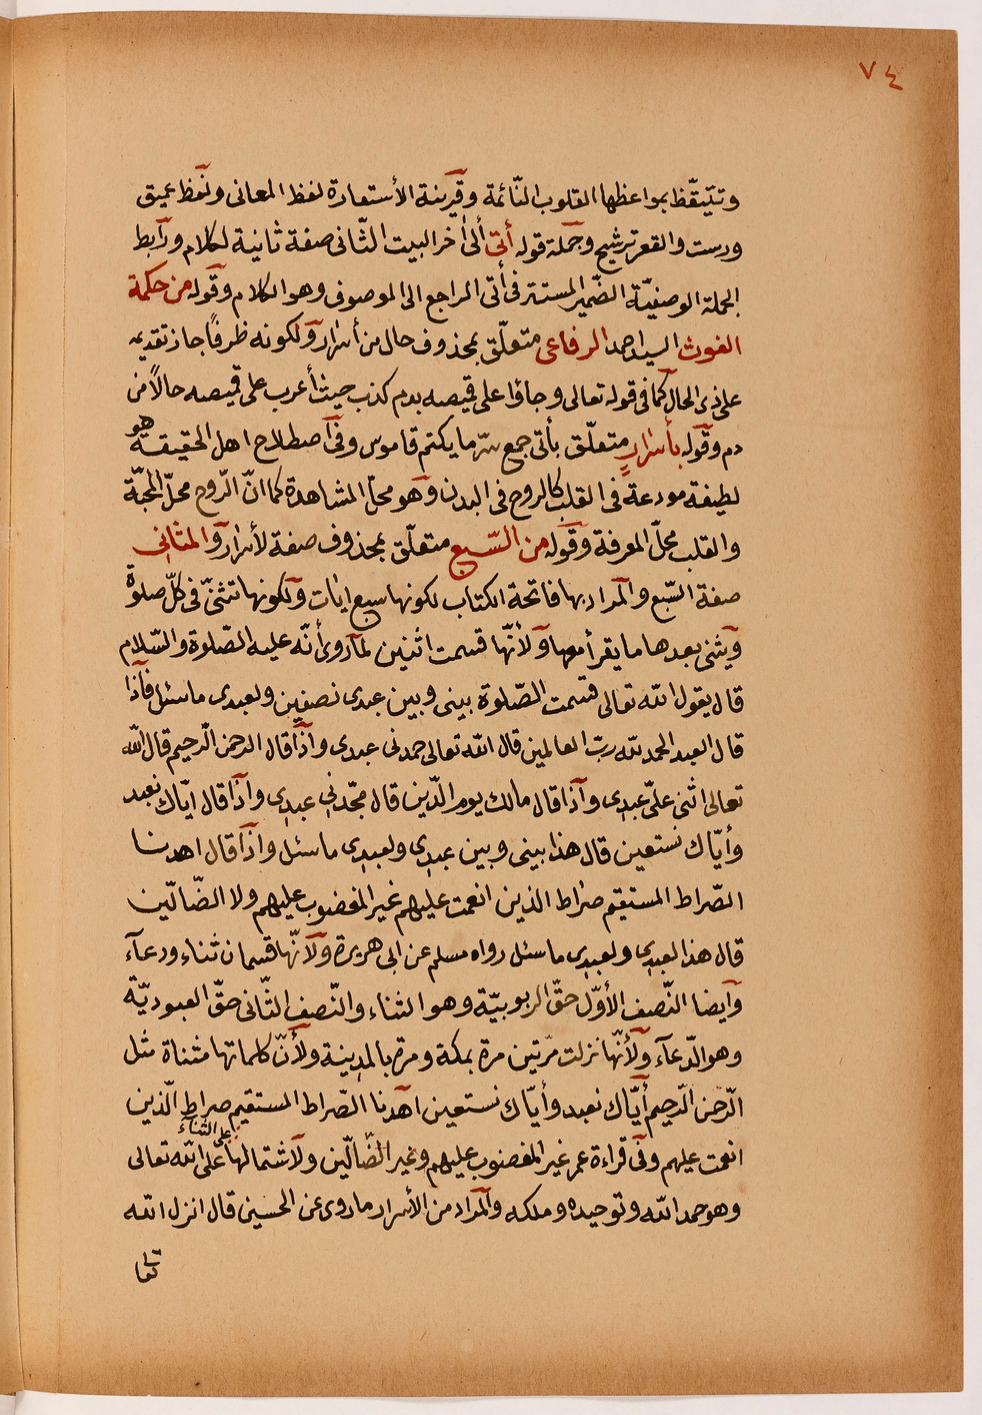 ٧٤
وتتيقّظ بمواعظها القلوب النّائمة وقرينة الأستعارة لفظ المعانى ونفظ عميق
ودست والقعر ترشيح وجملة قوله أتى ألى اٰخر البيت الثّانى صفة ثانية لكلام ورابط
الجملة الوصفيّة الضّمير المستتر فى أتى الراجع الى الموصوف وهو الكلام وقوله من حكمة
الغوث السيد احمد الرفاعى متعلّق بمحذوف حال من أسرار ولكونه ظرفًا جاز تقديمه
على ذى الحال كما فى قوله تعالى وجاؤا على قميصه بدم كذب حيث أعرب على قميصه حالاً من
دم وقوله بأسرارٍ متعلّق بأتى جمع سرّ ما يكتم قاموس وفى اصطلاح اهل الحقيقة هو
لطيفة مودعة فى القلب كالروح فى البدن وهو محلّ المشاهدة كما انّ الرّوح محلّ المحبّة
والقلب محلّ المعرفة وقوله من السّبع متعلّق بمحذوف صفة لأسرار والمثانى
صفة السّبع والمراد بها فاتحة الكتاب لكونها سبع اٰيات ولكونها تثنّى فى كلّ صلوة
ويثنى بعدها ما يقرأ معها ولأنّها قسمت اثنين لما روى أنّه عليه الصّلوة والسّلام
قال يقول الله تعالى قسمت الصّلوة بينى وبين عبدى نصفين ولعبدى ما سئل فاذا
قال العبد الحمد لله ربّ العالمين قال الله تعالى حمدنى عبدى واذا قال الرحمن الرّحيم قال الله
تعالى اثنى علىّ عبدى واذا قال مالك يوم الدّين قال مجّدنى عبدى واذا قال ايّاك نعبد
وأيّاك نستعين قال هذا بينى وبين عبدى ولعبدى ما سئل واذا قال اهدنا
الصّراط المستقيم صراط الذين انعمت عليهم غير المغضوب عليهم ولا الضّالّين
قال هذا لعبدى ولعبدى ما سئل رواه مسلم عن ابى هريرة ولأنّها قسمان ثناء ودعآء
وايضا النّصف الأوّل حقّ الربوبيّة وهو الثناء والنّصف الثّانى حقّ العبوديّة
وهو الدّعآء ولأنّها نزلت مرّتين مرة بمكة ومرة بالمدينة ولأنّ كلماتها مثناة مثل
الرّحمن الرّحيم أيّاك نعبد وأيّاك نستعين اهدنا الصّراط المستقيم صراط الّذين
انعمت عليهم وفى قراءة عمر غير المغضوب عليهم وغير الضّالّين ولاشتمالها على الثنآء على الله تعالى
وهو حمد الله وتوحيده وملكه والمراد من الأسرار ما روى عن الحسين قال انزل الله
تعا